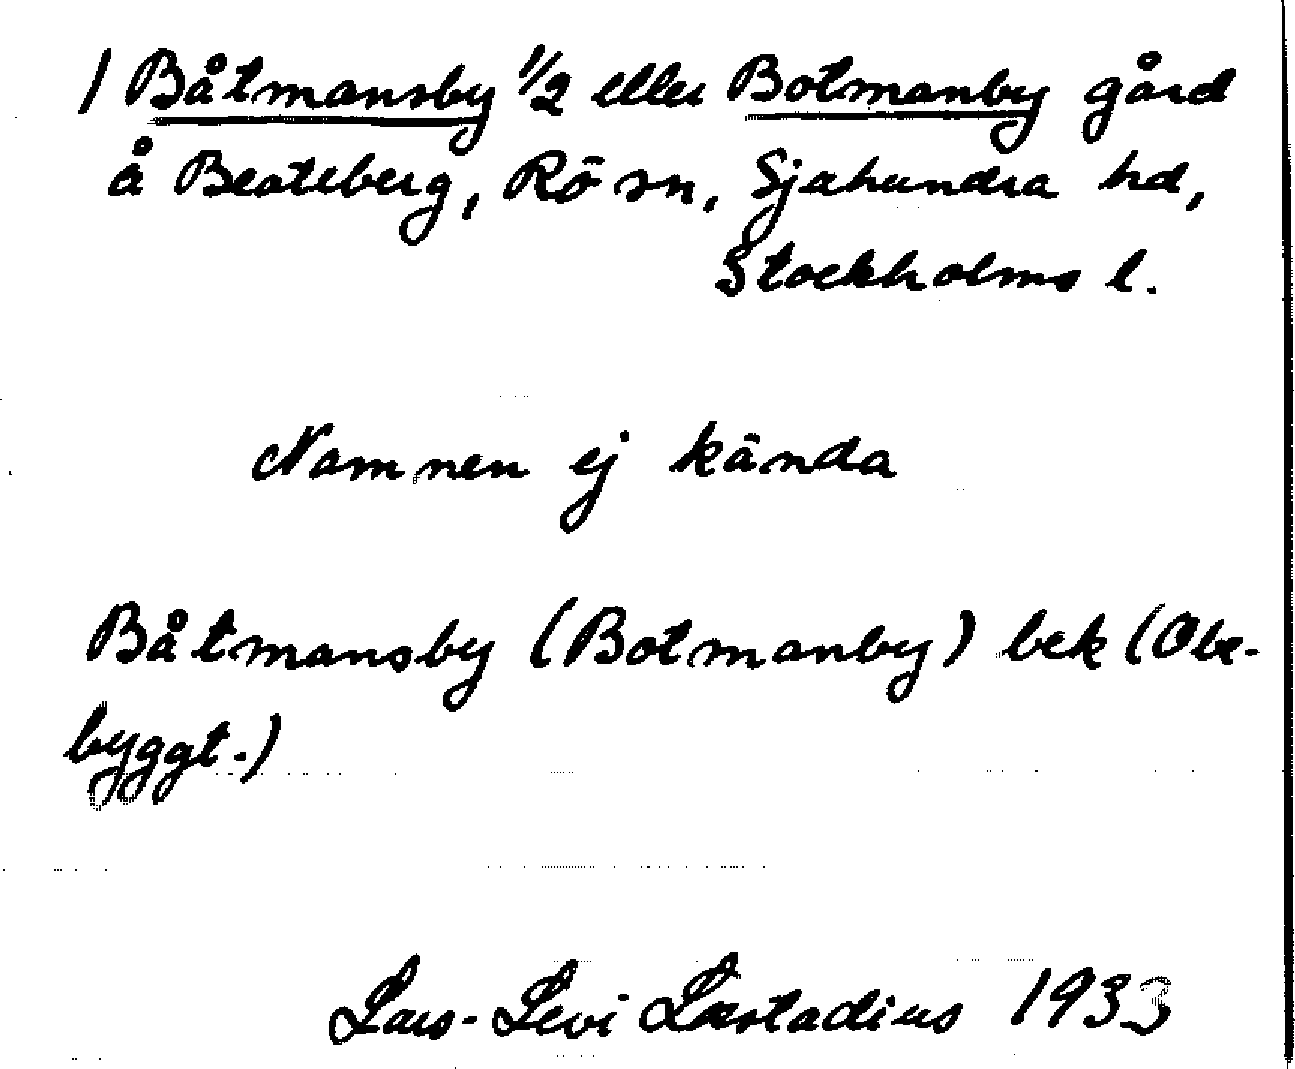 1 Båtmansby 1/2 eller Botmanby gård
å Beateberg, Rö sn, Sjuhundra hd,
Stockholms l.
Namnen ej kända
Båtmansby (Botmanby) bek (Obe-
byggt.)
Lars-Levi Læstadius 1933